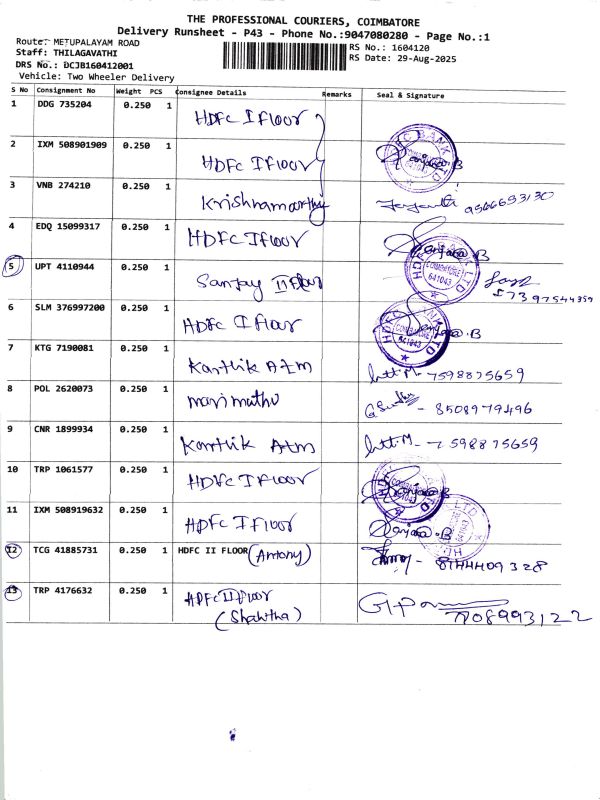 THE PROFESSIONAL COURIERS, COIMBATORE
Delivery Runsheet - P43 - Phone No.:9047080280 - Page No.:1
Route: METUPALAYAM ROAD RS No.: 1604120
Staff: THILAGAVATHI RS Date: 29-Aug-2025
DRS No.: DCJB160412001
Vehicle: Two Wheeler Delivery
S No Consignment No Weight PCS Consignee Details Remarks Seal & Signature
1 DDG 735204 0.250 1 HDFC I Floor
2 IXM 508901909 0.250 1 HDFC I Floor
3 VNB 274210 0.250 1 Krishnamorthy 9566653130
4 EDQ 15099317 0.250 1 HDFC I Floor
5 UPT 4110944 0.250 1 Sanjay II Floor
6 SLM 376997200 0.250 1 HDFC I Floor
7 KTG 7190081 0.250 1 Karthik Atm 7598875659
8 POL 2620073 0.250 1 marimathu - 8508979496
9 CNR 1899934 0.250 1 Karthik Atm - 7598875659
10 TRP 1061577 0.250 1 HDFC I Floor
11 IXM 508919632 0.250 1 HDFC I Floor
12 TCG 41885731 0.250 1 HDFC II FLOOR (Antony) - 8144409328
13 TRP 4176632 0.250 1 HDFC II Floor
(Shawtha) 7708993122